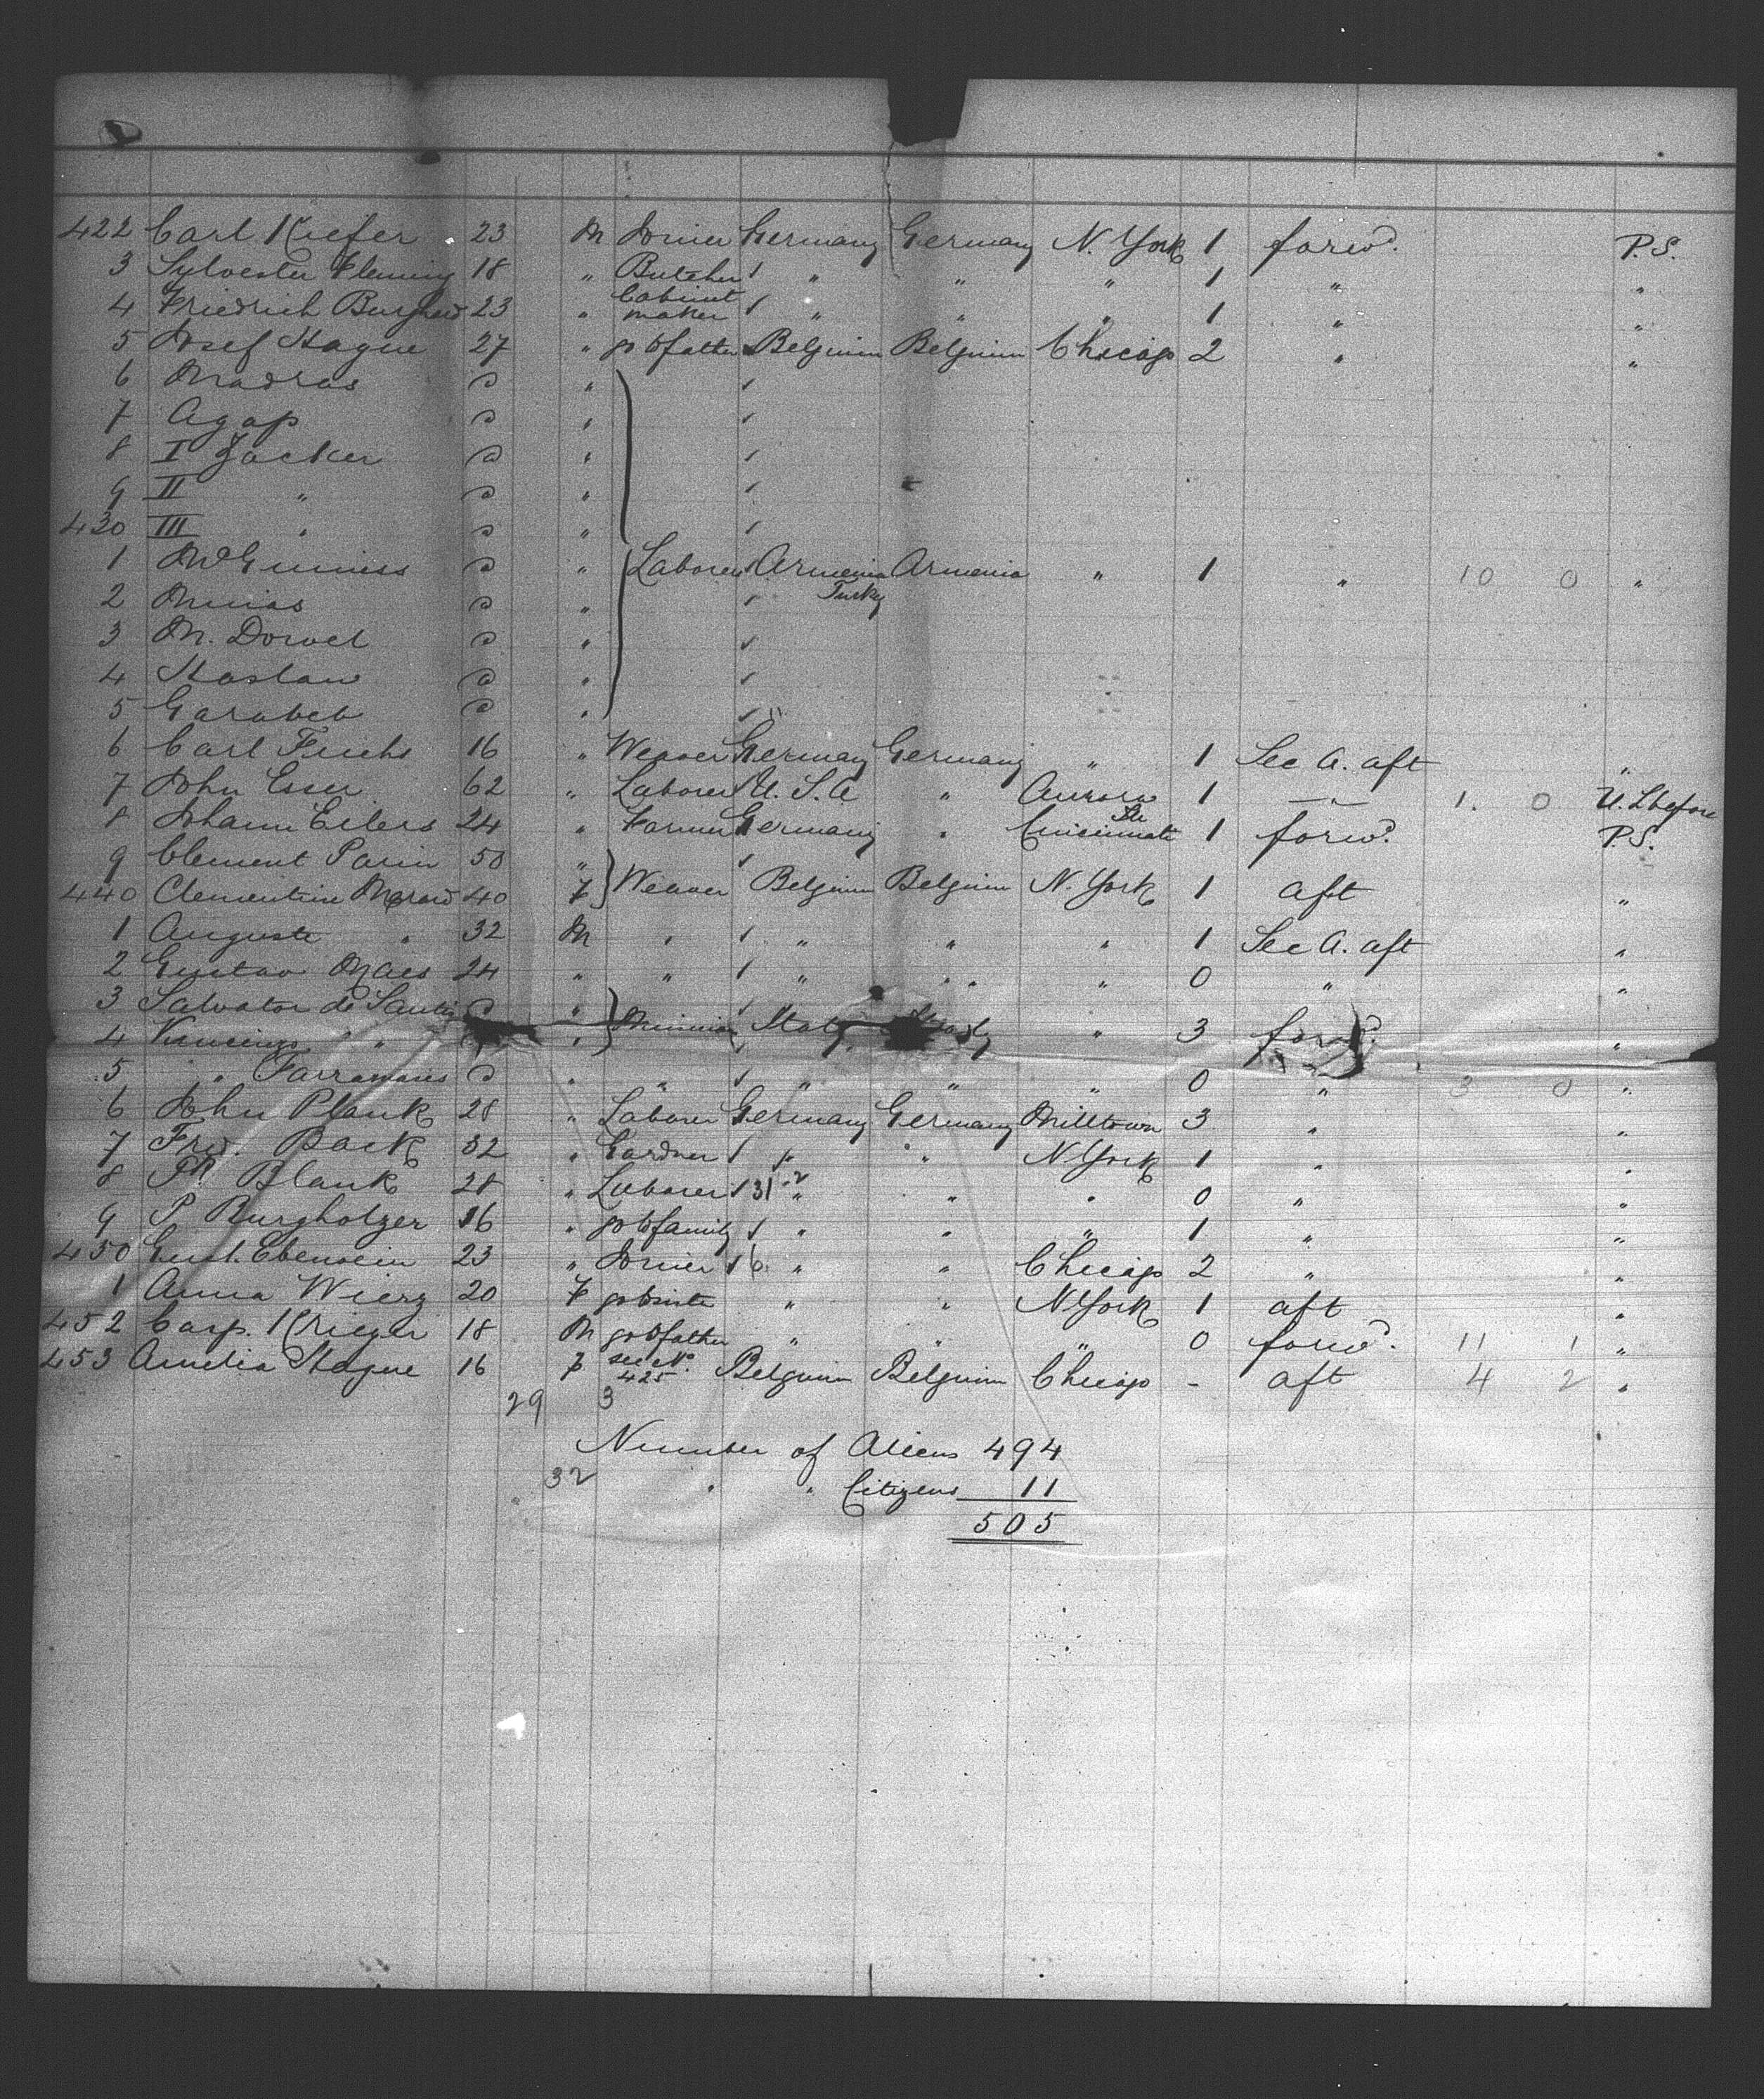 422 Carl Kiefer 23 M Joiner Germany Germany N. York 1 forwd. P.S.
3 Sylvester Fleming 18 " Butcher " " " 1 " "
4 Friedrich Burghard 23 " Cabinet maker " " " 1 " "
5 Josef Hague 27 " go to father Belgium Belgium Chicago 2 " "
6 Madras "
7 Agop "
8 I Zacker "
9 II " "
430 III " "
1 McGuiness " Laborer Armenia Turky Armenia " 1 " 10 0 "
2 Minas "
3 M. Dorvel "
4 Haslaw "
5 Garabeb "
6 Carl Frichs 16 " Weaver Germany Germany " 1 See A. aft "
7 John Esser 62 " Laborer U.S.A " Aurora 1 —"— 1. 0 U.S before
8 Johann Eilers 24 " Farmer Germany " Cincinnati 1 forwd. P.S.
9 Clement Parin 50 "
440 Clementine 40 F Weaver Belgium Belgium N. York 1 aft "
1 Auguste " 32 M " " " " 1 See A. aft "
2 Gustav Maes 24 " " " " " 0 " "
3 Salvator de Santis "
4 " " Italy " 3 forwd. "
5 " " " " " " 0 " 3 0 "
6 John Plank 28 " Laborer Germany Germany Milltown 3 " "
7 Frd. Back 32 " Gardner " " N York 1 " "
8 Blank 28 " Laborer " " " 0 " "
9 P Burgholzer 16 " go to family " " " 1 " "
450 Gust. Ebensein 23 " Joiner 6 " " Chicago 2 " "
1 Anna Wierz 20 F " " N York 1 aft "
452 Casp. Krieger 18 M go to father " " " 0 forwd. 11 1 "
453 Amelia Hague 16 F see No. 425 Belgium Belgium Chicago - aft 4 2 "
29 3
Number of Aliens 494
32 " " Citizens 11
505